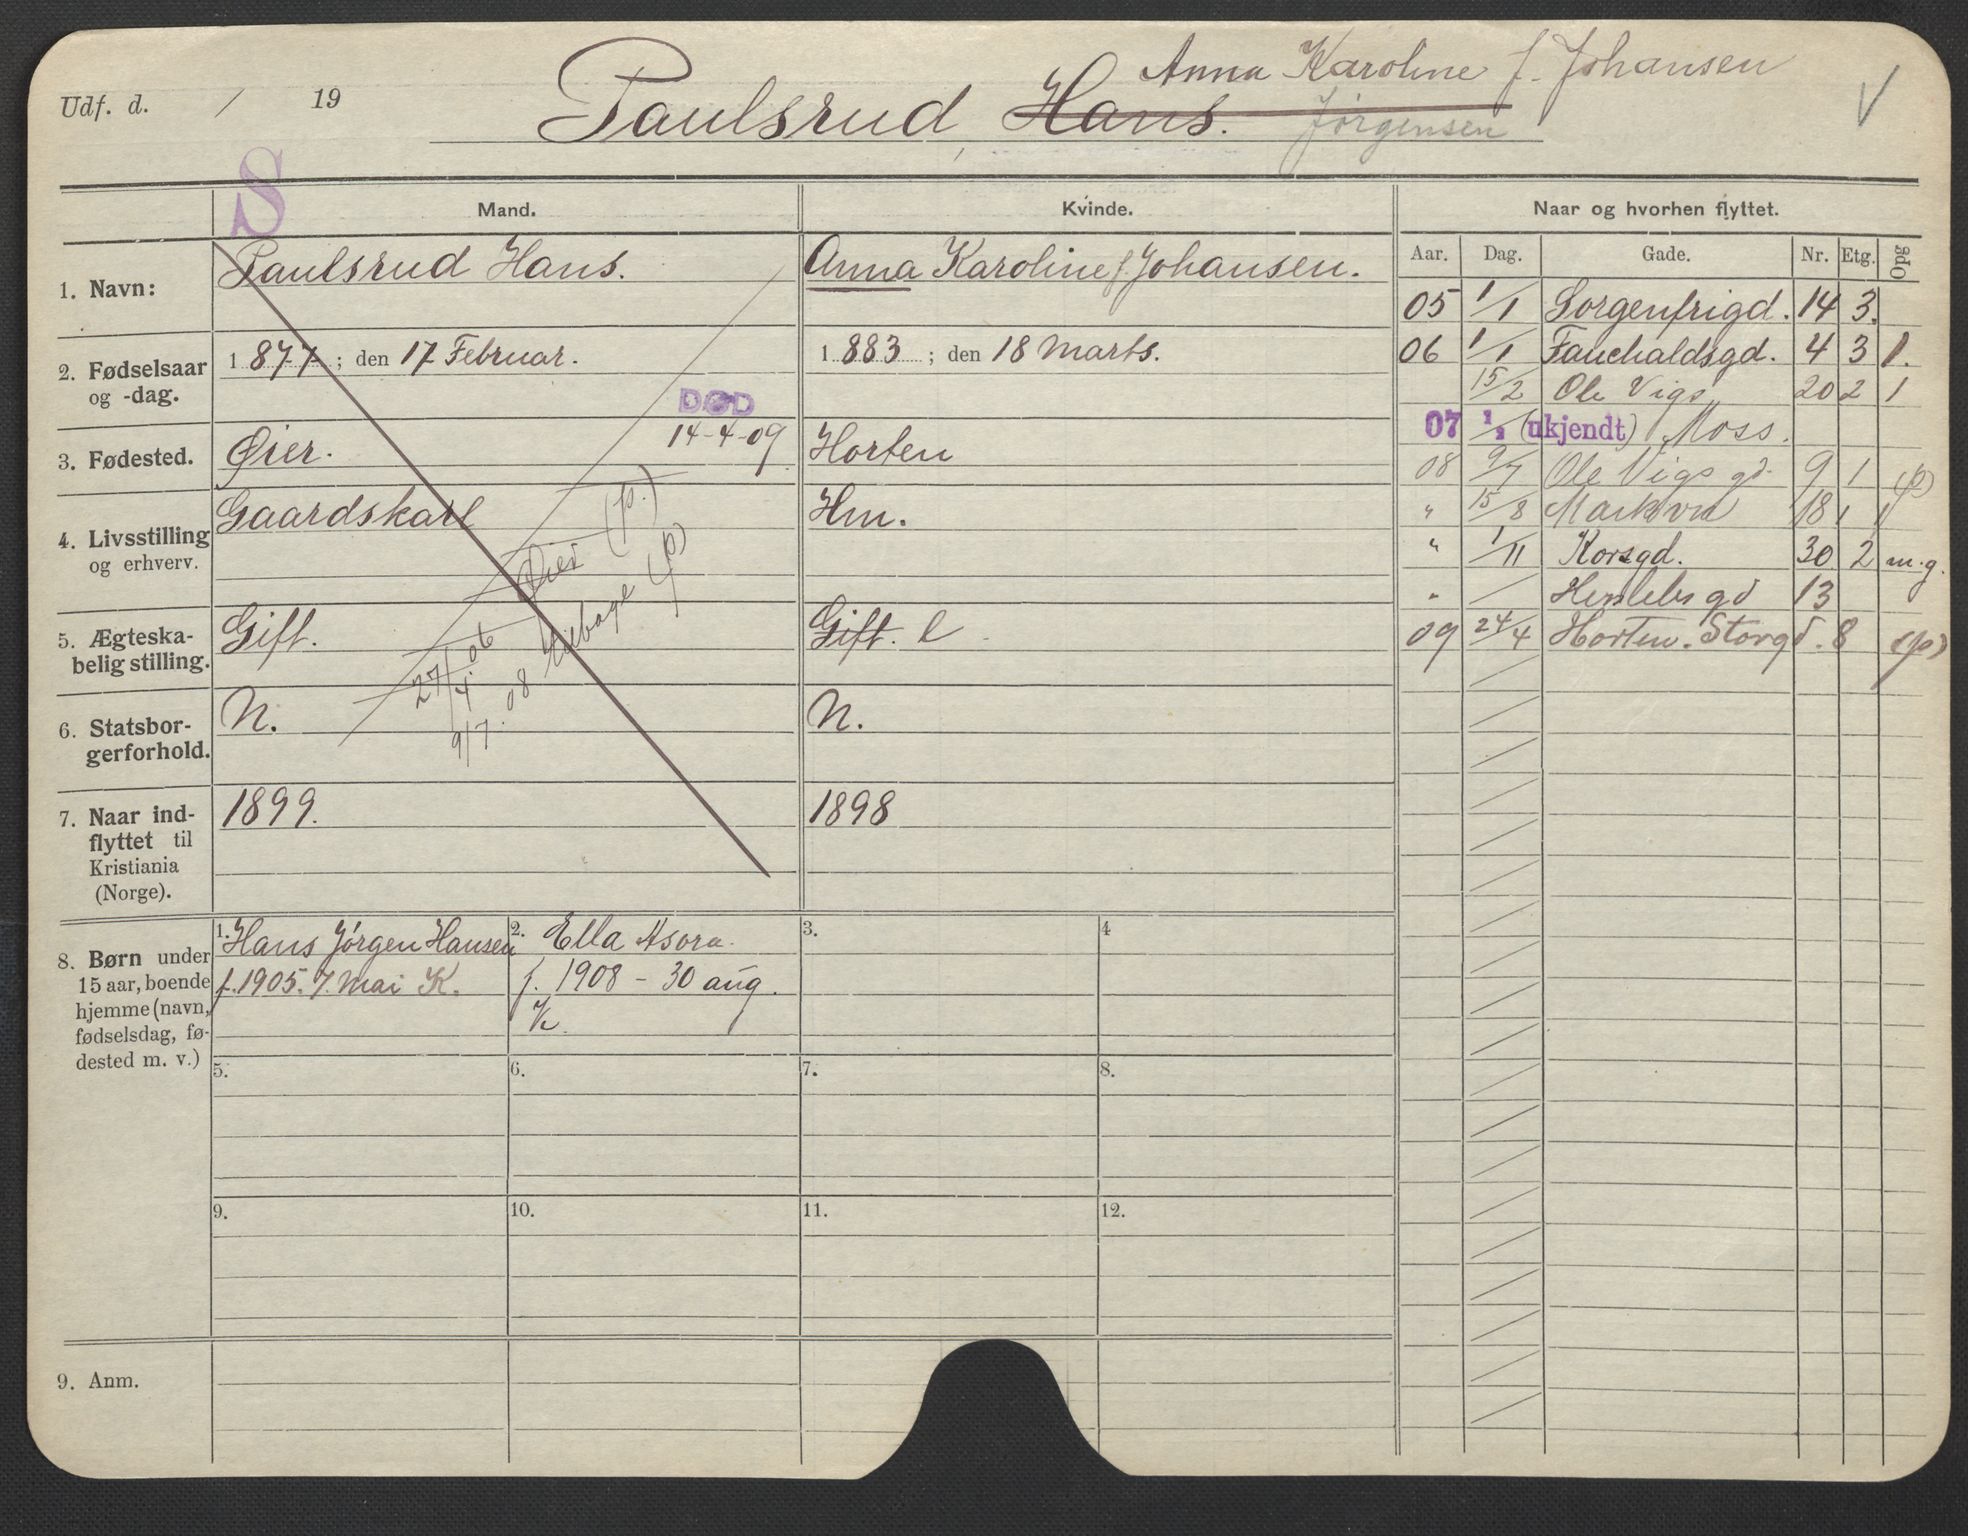 Udf. d. / 19
Paulsrud, Hans. Anna Karoline f. Johansen
Jørgensen
V
S
Mand. Kvinde. Naar og hvorhen flyttet.
Aar. Dag. Gade. Nr. Etg. Opg
1. Navn: Paulsrud Hans. Anna Karoline f. Johansen.
2. Fødselsaar og -dag. 1877; den 17 Februar. 1883; den 18 Marts.
DØD
14-4-09
3. Fødested. Øier. Horten
4. Livsstilling og erhverv. Gaardskarl Hm.
5. Ægteskabelig stilling. Gift. Gift. e
6. Statsborgerforhold. N. N.
27/4 06 Øier (p.)
9/7 08 tilbage (p)
7. Naar indflyttet til Kristiania (Norge). 1899. 1898
8. Børn under 15 aar, boende hjemme (navn, fødselsdag, fødested m. v.)
1. Hans Jørgen Hansen
f. 1905. 7. Mai K.
2. Ella Asora.
f. 1908 - 30 aug.
K.
3.
4
5.
6.
7.
8.
9.
10.
11.
12.
9. Anm.
05 1/1 Sorgenfrigd. 14 3.
06 1/1 Fauchaldsgd. 4 3 1.
15/2 Ole Vigs 20 2 1
07 1/2 (ukjendt) Moss.
08 9/7 Ole Vigs gd. 9 1 (p)
" 15/8 Markvn 18 1 1
" 1/11 Korsgd. 30 2 m.g.
" / Herslebs gd 13
09 24/4 Horten. Storgd. 8 (p)